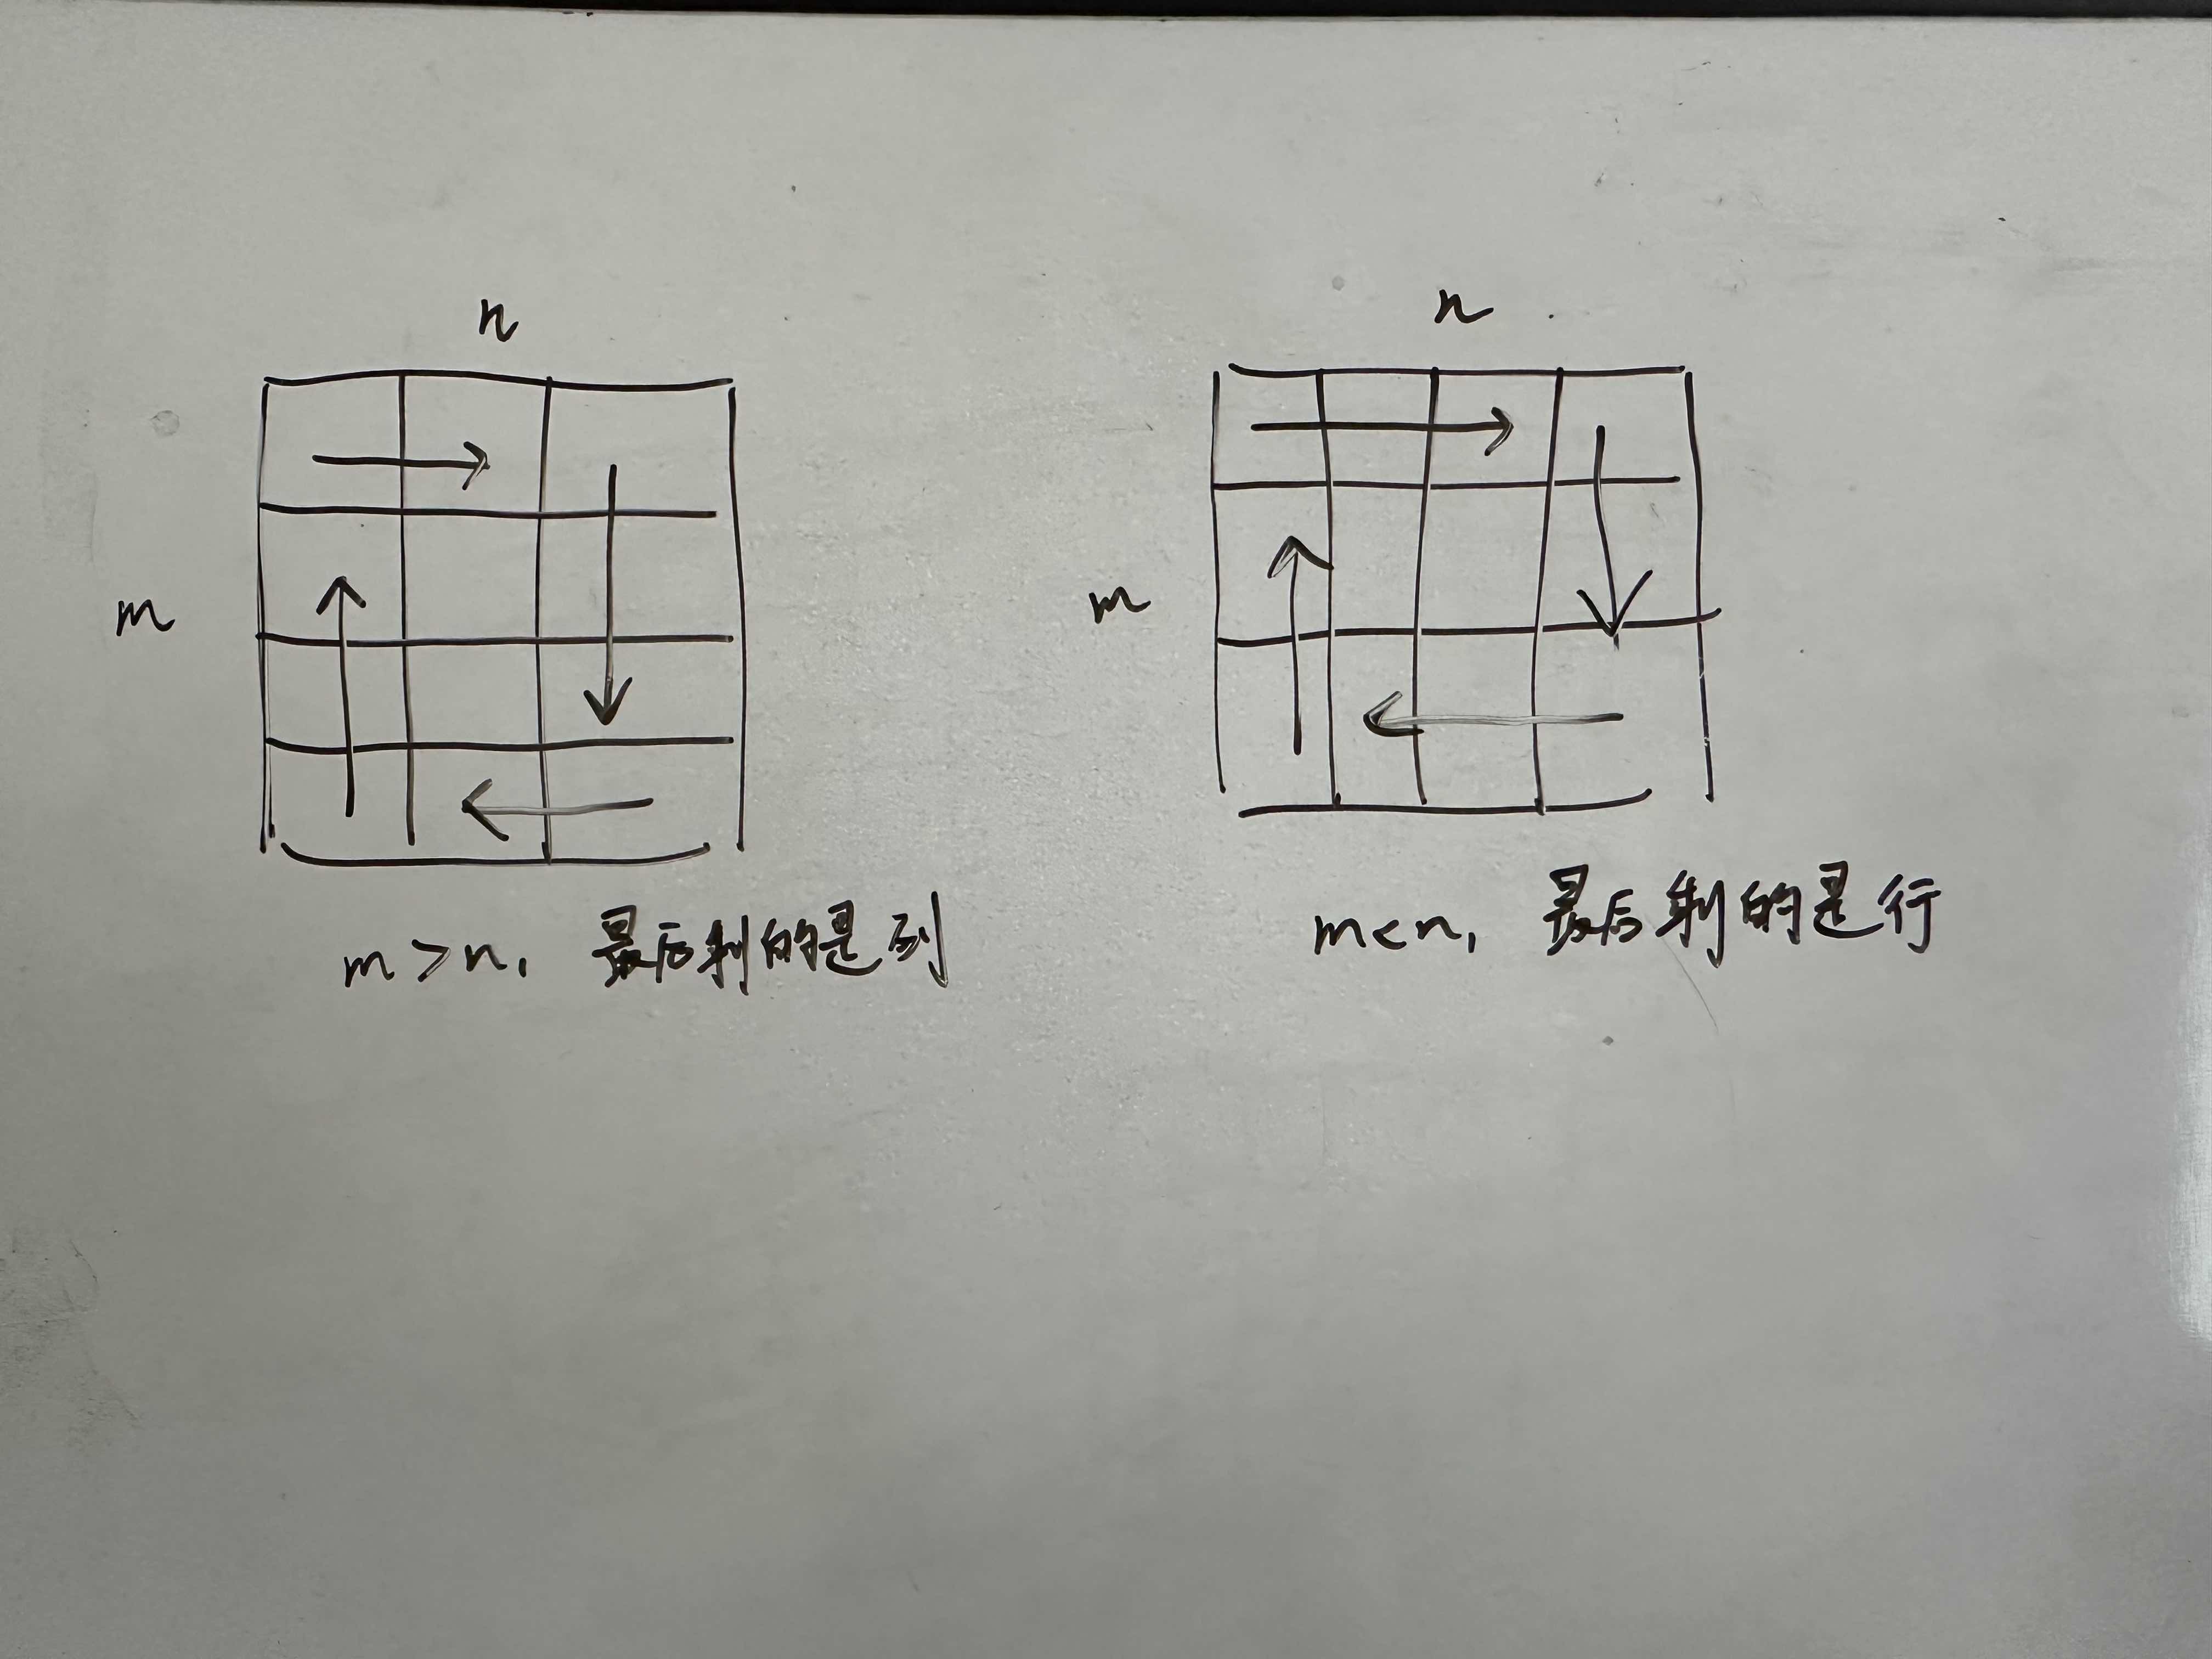 n
m
m>n, 最后剩的是列
n
m
m<n, 最后剩的是行